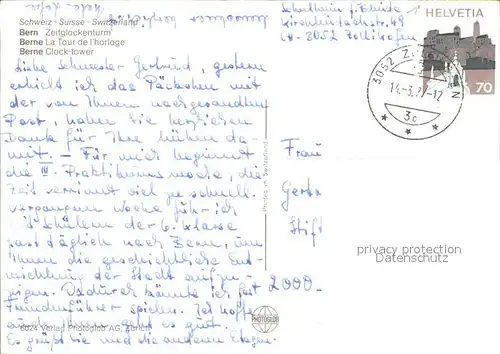 Schweiz · Suisse · Switzerland
Bern Zeitglockenturm
Berne La Tour de l'horloge
Berne Clock-tower
HELVETIA
70
3052
14-3.
-12
3c
CH-3052 Zollikofen
Liebe Schwester Gertrud, gestern
erhielt ich das Päckchen mit
der von Ihnen nachgesandten
Post, haben Sie herzlichen
Dank für Ihre Mühen da-
mit. – Für mich beginnt
die III. Praktikumswoche, die
Zeit verrinnt viel zu schnell.
vergangene Woche fuhr ich
Schülern der 6. Klasse
fast täglich nach Bern, um
ihnen die geschichtliche Ent-
wicklung der Stadt aufzu-
zeigen. Dadurch könnte ich fast
Fremdenführer spielen. Ich hoffe
geht es gut.
Es grüßt Sie und die anderen
Frau
Stift
2000
privacy protection
Datenschutz
Printed in Switzerland
PHOTOGLOB
6024 Verlag Photoglob AG, Zürich